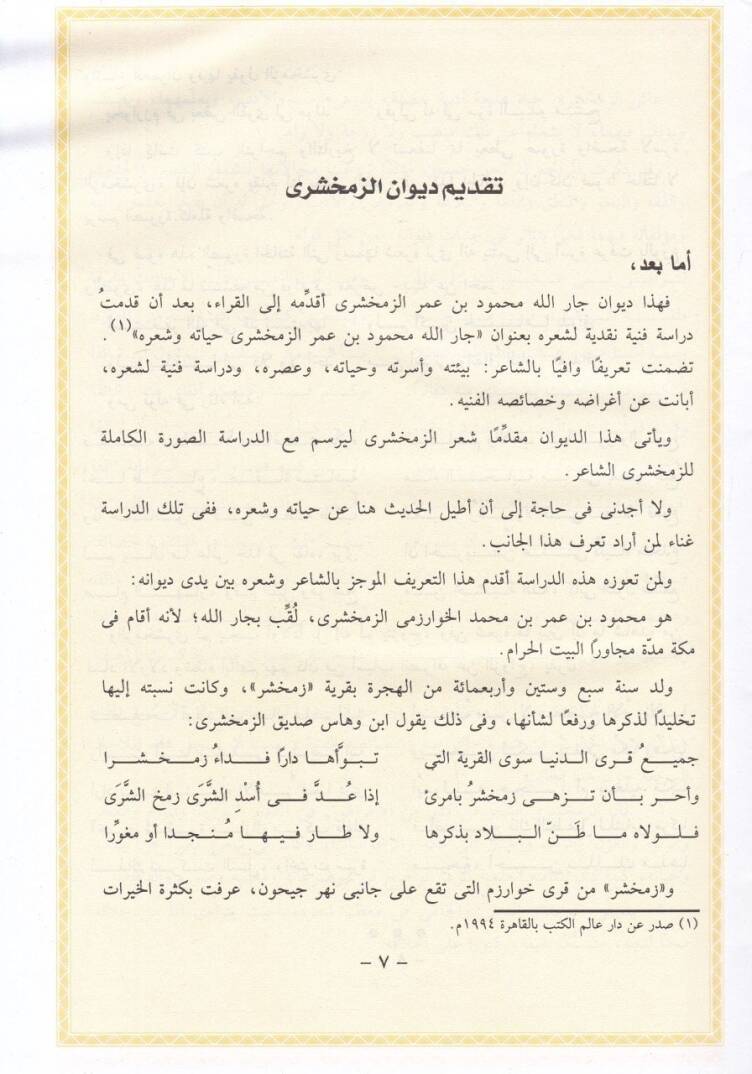 تقديم ديوان الزمخشرى
أما بعد،
فهذا ديوان جار الله محمود بن عمر الزمخشرى أقدِّمه إلى القراء، بعد أن قدمتُ
دراسة فنية نقدية لشعره بعنوان «جار الله محمود بن عمر الزمخشرى حياته وشعره»(١).
تضمنت تعريفًا وافيًا بالشاعر: بيئته وأسرته وحياته، وعصره، ودراسة فنية لشعره،
أبانت عن أغراضه وخصائصه الفنيه.
ويأتى هذا الديوان مقدِّمًا شعر الزمخشرى ليرسم مع الدراسة الصورة الكاملة
للزمخشرى الشاعر.
ولا أجدنى فى حاجة إلى أن أطيل الحديث هنا عن حياته وشعره، ففى تلك الدراسة
غناء لمن أراد تعرف هذا الجانب.
ولمن تعوزه هذه الدراسة أقدم هذا التعريف الموجز بالشاعر وشعره بين يدى ديوانه:
هو محمود بن عمر بن محمد الخوارزمى الزمخشرى، لُقِّب بجار الله؛ لأنه أقام فى
مكة مدّة مجاورًا البيت الحرام.
ولد سنة سبع وستين وأربعمائة من الهجرة بقرية «زمخشر»، وكانت نسبته إليها
تخليدًا لذكرها ورفعًا لشأنها، وفى ذلك يقول ابن وهاس صديق الزمخشرى:
جميعُ قرى الدنيا سوى القرية التي تبوَّأها دارًا فداءُ زمخشرا
وأحر بأن تزهى زمخشرُ بامرئ إذا عُدَّ فى أُسْدِ الشَّرَى زمخ الشَّرَى
فلولاه ما طَنّ البلاد بذكرها ولا طار فيها مُنجدا أو مغورًا
و«زمخشر» من قرى خوارزم التى تقع على جانبى نهر جيحون، عرفت بكثرة الخيرات
(١) صدر عن دار عالم الكتب بالقاهرة ١٩٩٤م.
– ٧ –